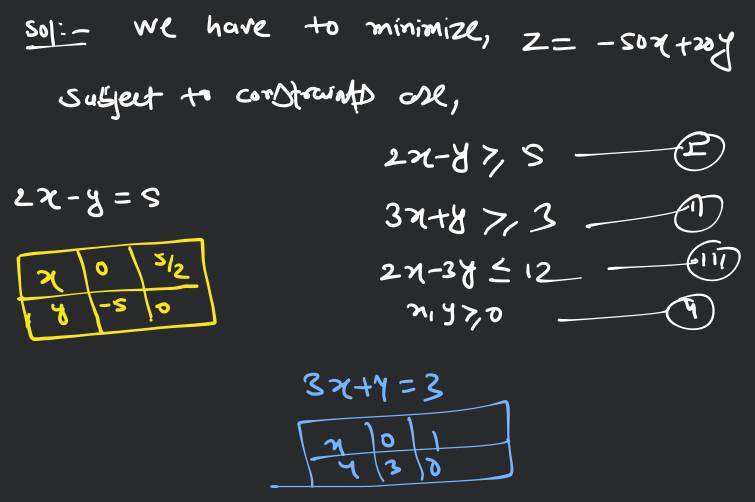 Sol:- We have to minimize, Z = -50x+20y
Subject to constraints are,
2x-y ≥ 5 — I
2x-y = 5
3x+y ≥ 3 — II
x | 0 | 5/2
y | -5 | 0
2x-3y ≤ 12 — III
x, y ≥ 0 — 4
3x+y = 3
x | 0 | 1
y | 3 | 0